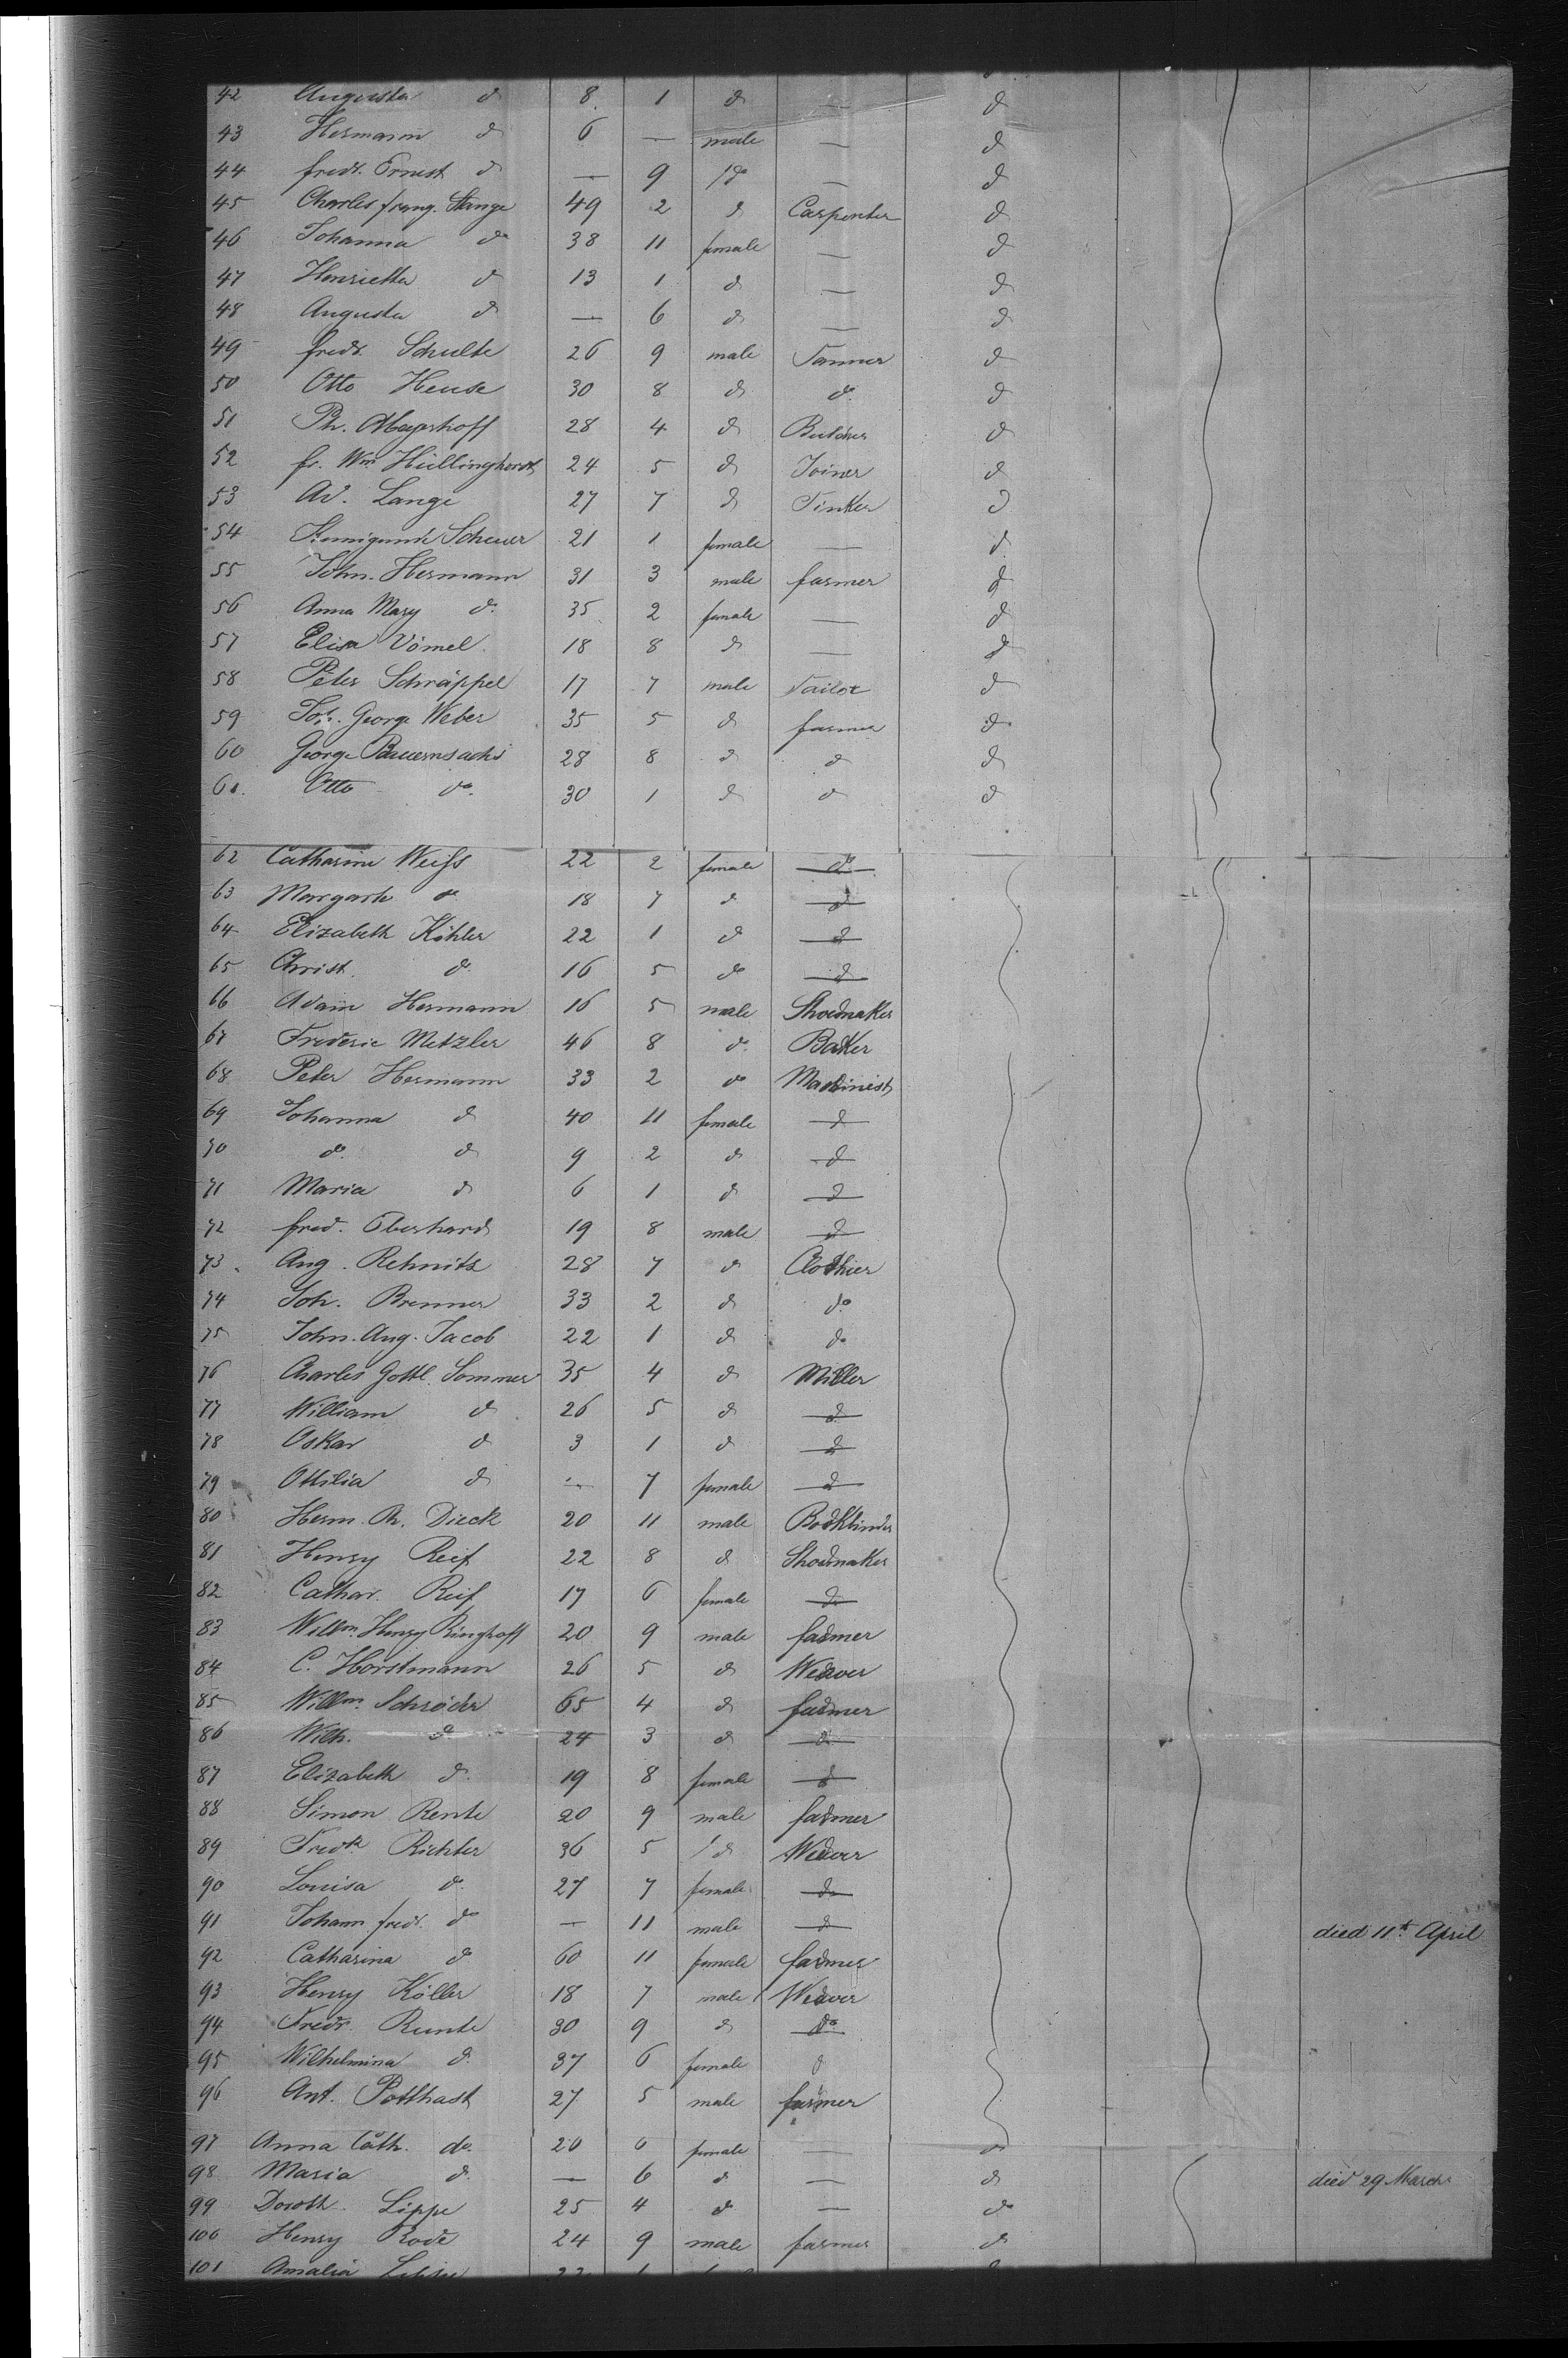 42 Augusta do 8 1 do — do
43 Hermann do 6 — male — do
44 fredr. Ernest do — 9 do — do
45 Charles franz. Stange 49 2 do Carpenter do
46 Johanna do 38 11 female — do
47 Henrietta do 13 1 do — do
48 Augusta do — 6 do — do
49 fredr. Schulte 26 9 male Tanner do
50 Otto Heuse 30 8 do do do
51 Ph. Mayerhoff 28 4 do Butcher do
52 fr. Wm Hüllinghorst 24 5 do Joiner do
53 Ad. Lange 27 7 do Tinker do
54 Kunnigunde Scheuer 21 1 female — do
55 John. Hermann 31 3 male farmer do
56 Anna Mary do 35 2 female — do
57 Elisa Vömel 18 8 do — do
58 Peter Schräppel 17 7 male Tailor do
59 Joh. George Weber 35 5 do farmer do
60 George Bauernsachs 28 8 do do do
61. Otto do. 30 1 do do do
62 Catharine Weiss 22 2 female do
63 Margarte do 18 7 do do
64 Elizabeth Köhler 22 1 do do
65 Christ. do 16 5 do do
66 Adam Hermann 16 5 male Shoemaker
67 Frederic Metzler 46 8 do. Baker
68 Peter Hermann 33 2 do Machinist
69 Johanna do 40 11 female do
70 do. do 9 2 do do
71 Maria do 6 1 do do
72 fred. Eberhard 19 8 male do
73 Aug. Rehnitz 28 7 do Clothier
74 Joh. Brenner 33 2 do do
75 John. Aug. Jacob 22 1 do do
76 Charles Gottl. Sommer 35 4 do Miller
77 William do 26 5 do do
78 Oskar do 3 1 do do
79 Ottilia do — 7 female do
80 Herm. Ch. Dieck 20 11 male Bookbinder
81 Henry Reif 22 8 do Shoemaker
82 Cathar. Reif 17 6 female do
83 Willm. Henry Ringhoff 20 9 male farmer
84 C. Horstmann 26 5 do Weaver
85 Willm. Schröder 65 4 do farmer
86 Wilh. do 24 3 do do
87 Elizabeth do. 19 8 female do
88 Simon Rente 20 9 male farmer
89 Fredk Richter 36 5 do Weaver
90 Louisa do. 27 7 female do
91 Johann fredr. do — 11 male do died 11th April
92 Catharina do 60 11 female farmer
93 Henry Köller 18 7 male Weaver
94 Fredr. Runte 30 9 do do
95 Wilhelmina do. 37 6 female do
96 Ant. Potthast 27 5 male farmer
97 Anna Cath. do. 20 6 female — do
98 Maria do. — 6 do — do died 29 March
99 Doroth. Lippe 25 4 do — do
100 Henry Rode 24 9 male farmer do
101 Amalia Lippe 22 1